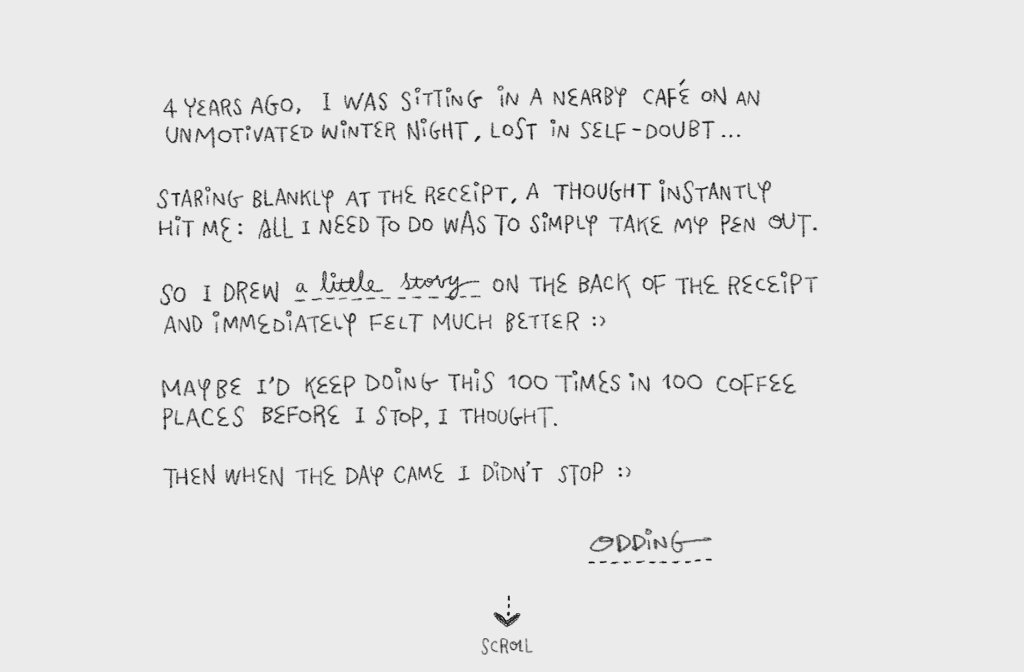 4 YEARS AGO, I WAS SITTING IN A NEARBY CAFÉ ON AN
UNMOTIVATED WINTER NIGHT, LOST IN SELF-DOUBT...
STARING BLANKLY AT THE RECEIPT, A THOUGHT INSTANTLY
HIT ME: ALL I NEED TO DO WAS TO SIMPLY TAKE MY PEN OUT.
SO I DREW a little story ON THE BACK OF THE RECEIPT
AND IMMEDIATELY FELT MUCH BETTER :)
MAYBE I'D KEEP DOING THIS 100 TIMES IN 100 COFFEE
PLACES BEFORE I STOP, I THOUGHT.
THEN WHEN THE DAY CAME I DIDN'T STOP :)
ODDING
SCROLL